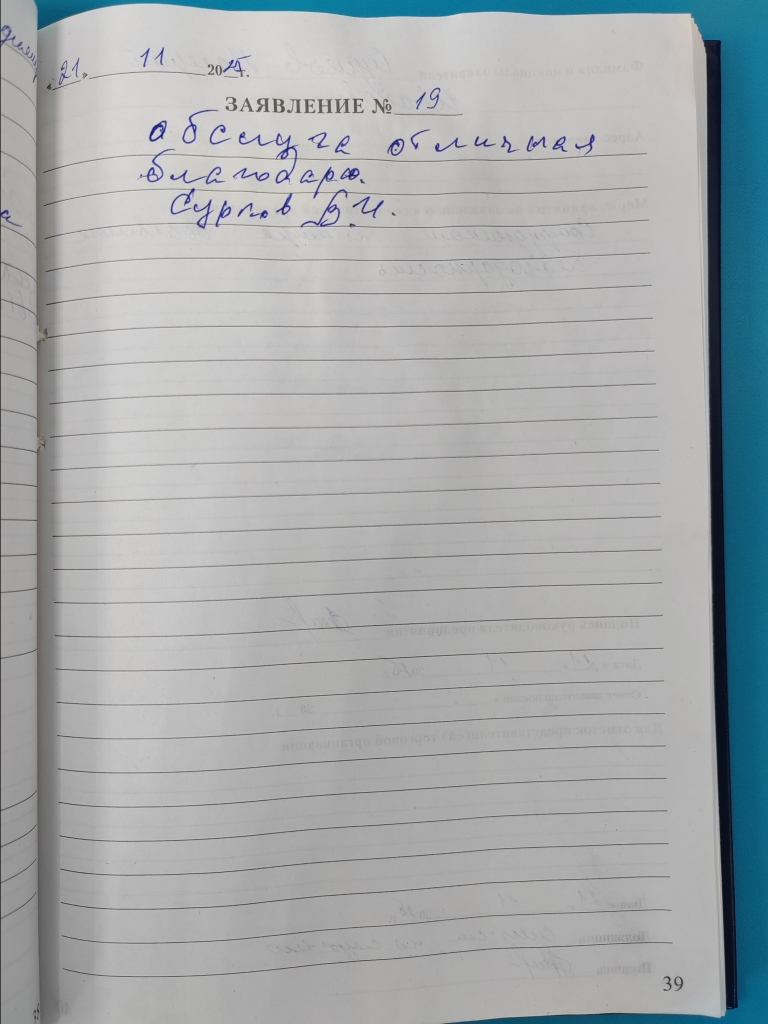 «21» 11 2025г.
ЗАЯВЛЕНИЕ № 19
обслуга отличная
благодарю.
Сурков В.И.
39